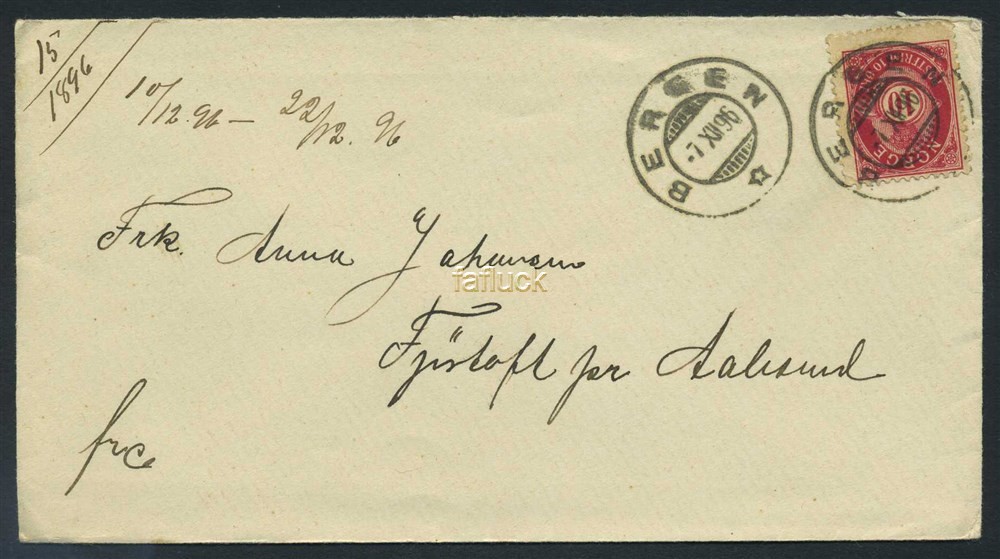 15
1896
10/12.96 — 22/12.96
BERGEN
-7 XII 96
BERGEN
-7 XII 96
NORGE
10
Frk. Anna Johansen
fafluck
Fjörtoft pr Aalesund
frc